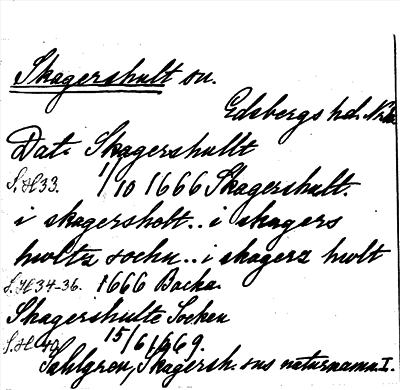 Skagershult sn.
Edsbergs hd. Nke
Dat. Skagershullt
S.H 33. 1/10 1666 Skagershult.
i skagersholt.. i skagers
hwltz sochn.. i skagerz hwlt
S.H 34-36. 1666 Backa.
Skagershulte Socken
S.H 49. 15/6 1669.
Sahlgren, Skagersh. sns naturnamn I.